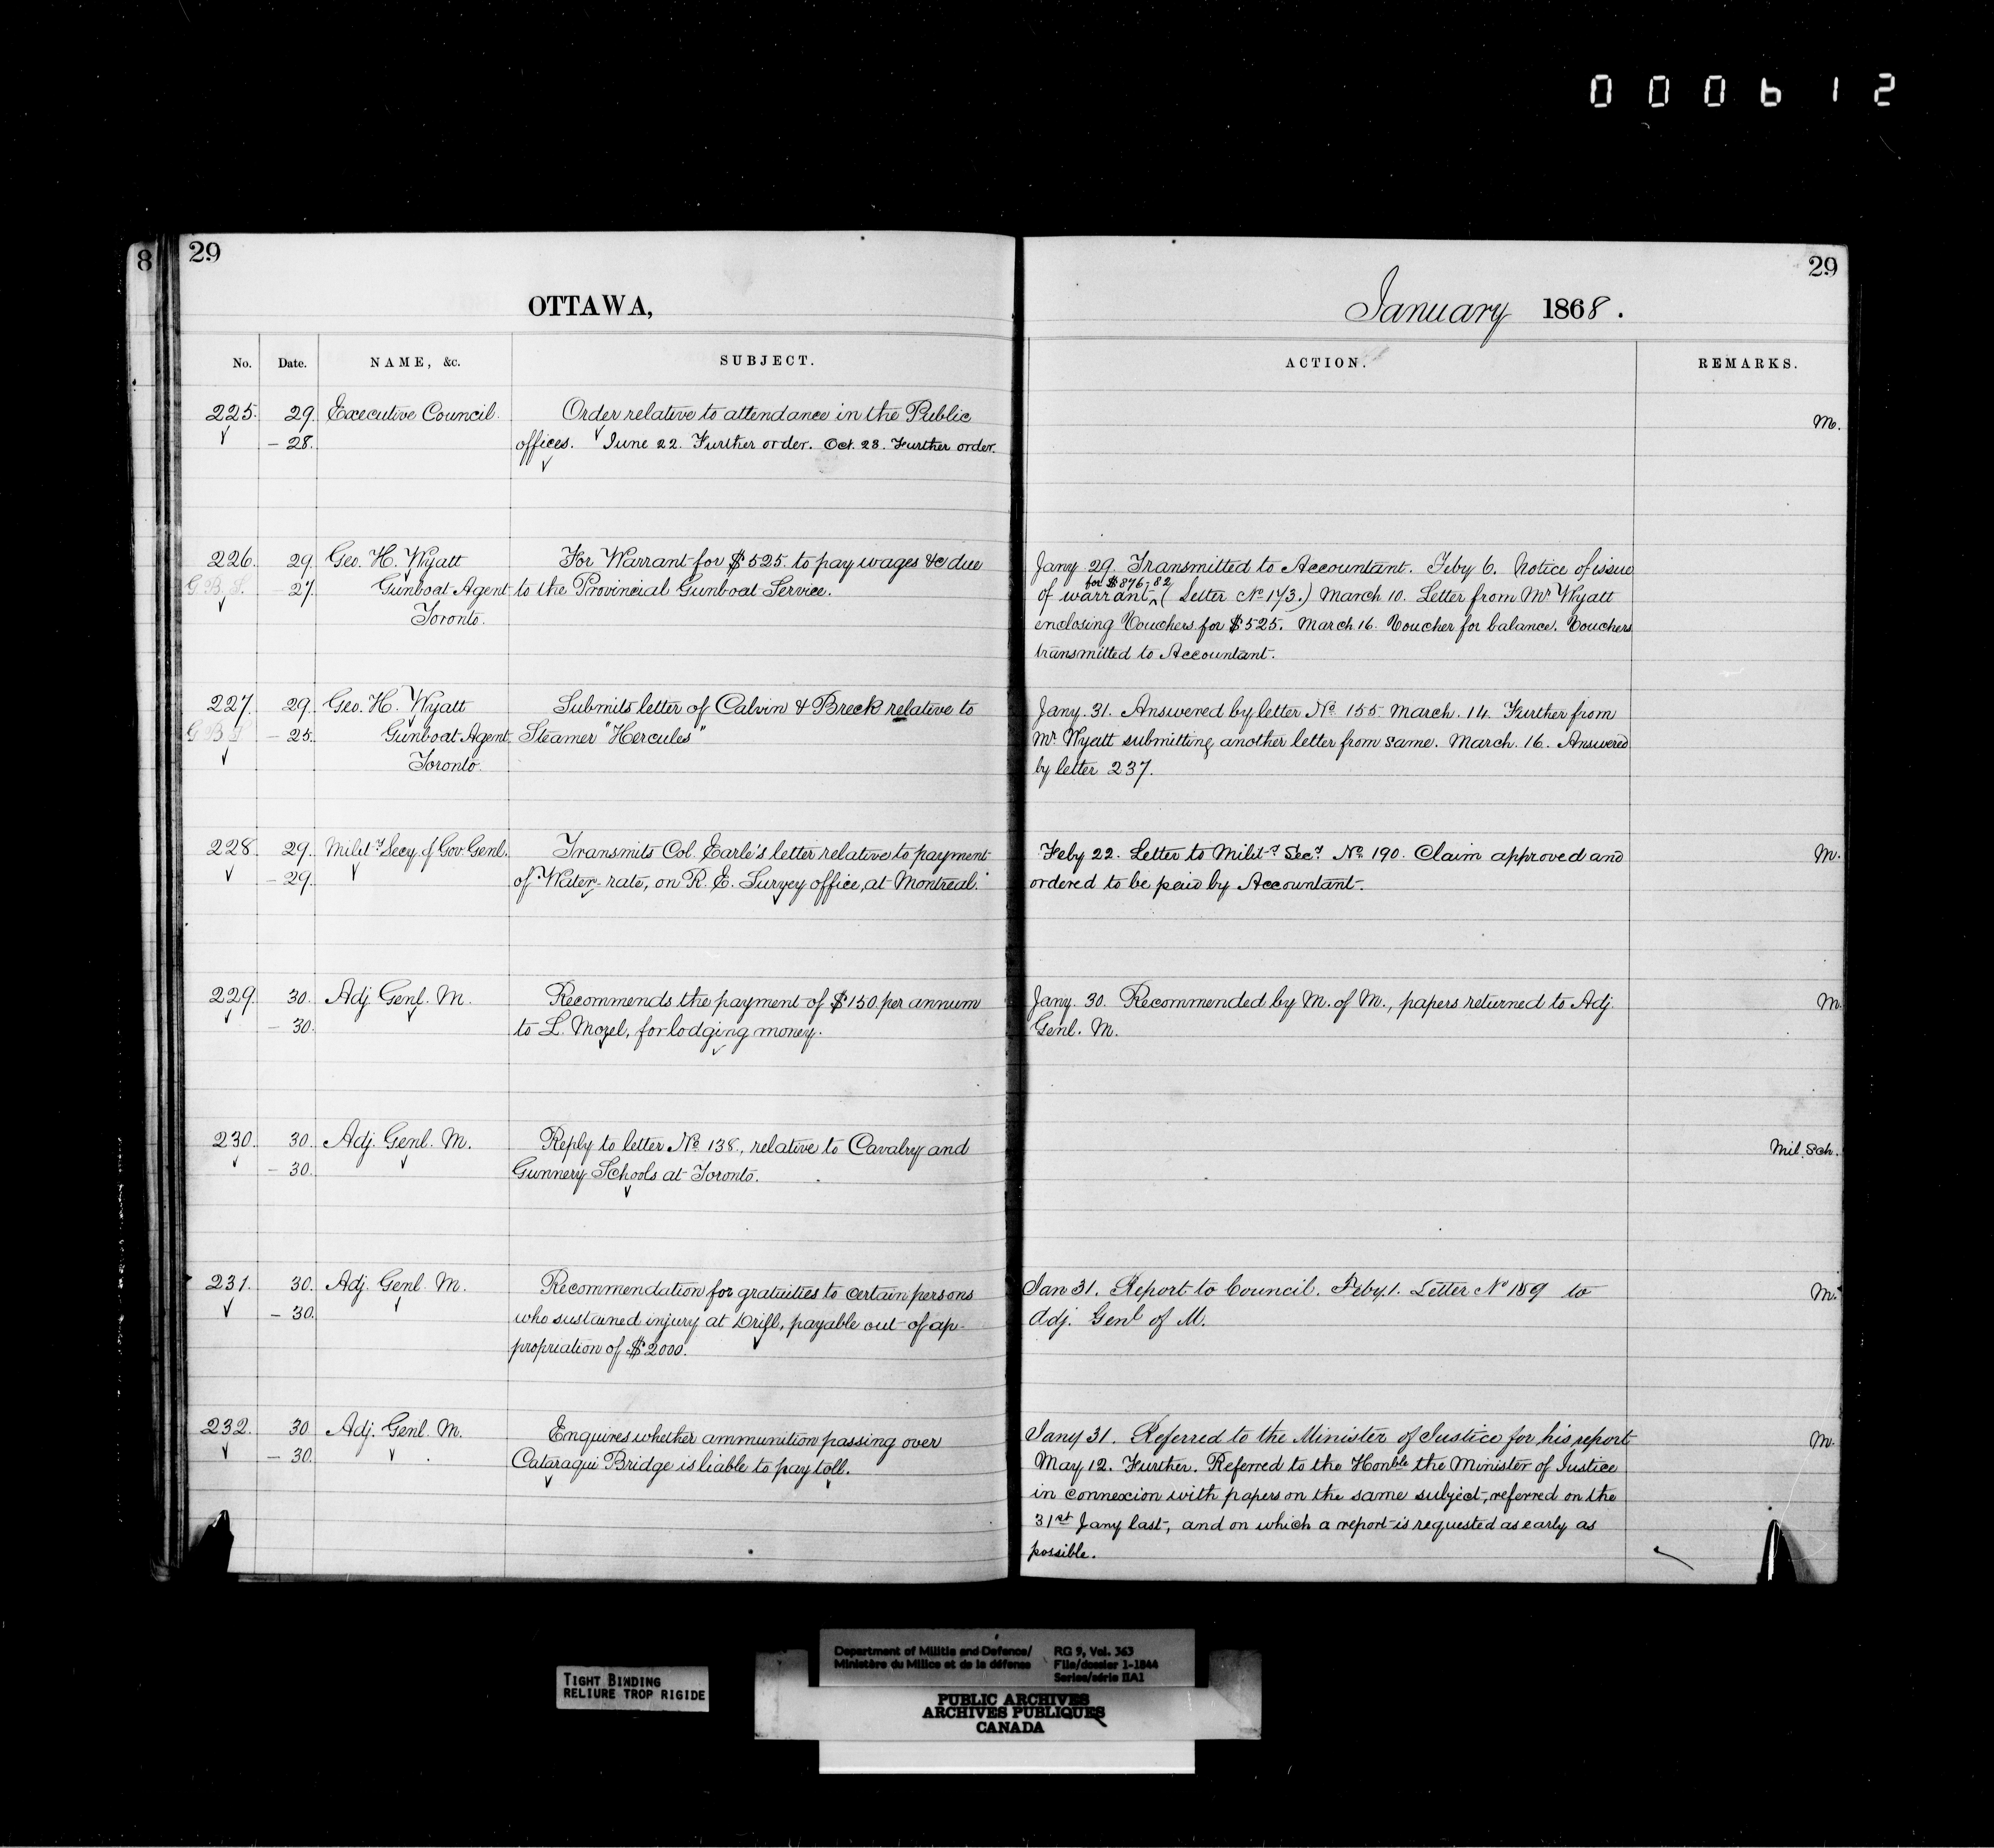 000612
8 29
29
OTTAWA,
January 1868.
No. Date. NAME, &c. SUBJECT.
ACTION. REMARKS.
225. 29. Executive Council. Order relative to attendance in the Public
M.
– 28. offices. June 22. Further order. Oct. 23. Further order.
226. 29. Geo. H. Wyatt For Warrant for $525. to pay wages &c due
G.B.S. 27. Gunboat Agent to the Provincial Gunboat Service.
Toronto.
Jany 29. Transmitted to Accountant. Feby 6. Notice of issue
for $876-82
of warrant ^ (Letter No 173.) March 10. Letter from Mr Wyatt
enclosing Vouchers for $525. March 16. Voucher for balance. Vouchers
transmitted to Accountant.
227. 29. Geo. H. Wyatt Submits letter of Calvin & Breck relative to
G B S – 25. Gunboat Agent, Steamer "Hercules"
Toronto.
Jany. 31. Answered by letter No 155 March. 14. Further from
Mr Wyatt submitting another letter from same. March. 16. Answered
by letter 237.
228. 29. Milit.y Secy. of Gov. Genl. Transmits Col. Earle's letter relative to payment
– 29. of Water-rate, on R. E. Survey office, at Montreal.
Feby 22. Letter to Milit.y Sec.y No 190. Claim approved and M.
ordered to be paid by Accountant.
229. 30. Adj. Genl. M. Recommends the payment of $150. per annum
– 30. to L. Mozel, for lodging money.
Jany. 30. Recommended by M. of M., papers returned to Adj. M.
Genl. M.
230. 30. Adj. Genl. M. Reply to letter No 138., relative to Cavalry and
– 30. Gunnery Schools at Toronto.
Mil. Sch.
231. 30. Adj. Genl. M. Recommendation for gratuities to certain persons
– 30. who sustained injury at Drill, payable out of ap-
propriation of $2000.
Jan 31. Report to Council. Feby. 1. Letter No 159 to M.
Adj. Genl of M.
232. 30 Adj. Genl. M. Enquires whether ammunition passing over
– 30. Cataraqui Bridge is liable to pay toll.
Jany 31. Referred to the Minister of Justice for his report M.
May 12. Further. Referred to the Honble the Minister of Justice
in connexion with papers on the same subject, referred on the
31st Jany last, and on which a report is requested as early as
possible.
TIGHT BINDING
RELIURE TROP RIGIDE
Department of Militia and Defence/ RG 9, Vol. 363
Ministère du Milice et de la défense File/dossier 1-1844
Series/série IIA1
PUBLIC ARCHIVES
ARCHIVES PUBLIQUES
CANADA